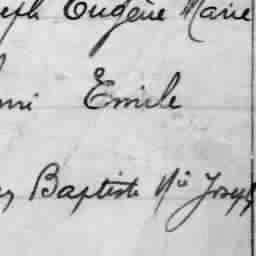 eph Eugène Marie
Emile
Baptiste Nis Joseph